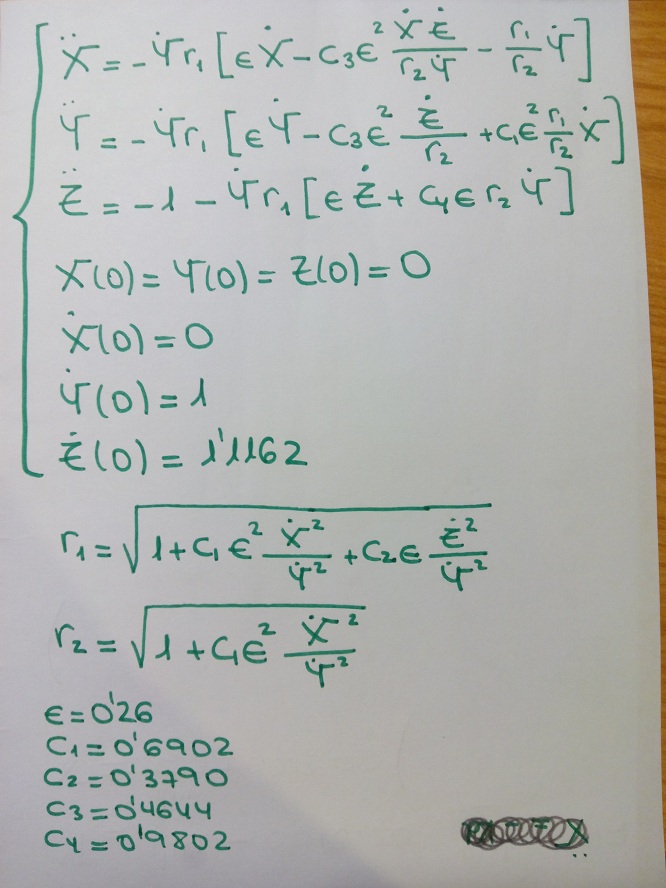 Ẍ = -Ẏr₁[εẊ - C₃ε² ẊŻ/(r₂Ẏ) - (r₁/r₂)Ẏ]
Ÿ = -Ẏr₁[εẎ - C₃ε² Ż/r₂ + C₁ε² (r₁/r₂)Ẋ]
Z̈ = -1 - Ẏr₁[εŻ + C₄εr₂Ẏ]
X(0) = Y(0) = Z(0) = 0
Ẋ(0) = 0
Ẏ(0) = 1
Ż(0) = 1'1162
r₁ = √(1 + C₁ε² Ẋ²/Ẏ² + C₂ε Ż²/Ẏ²)
r₂ = √(1 + C₁ε² Ẋ²/Ẏ²)
ε = 0'26
C₁ = 0'6902
C₂ = 0'3790
C₃ = 0'4644
C₄ = 0'9802